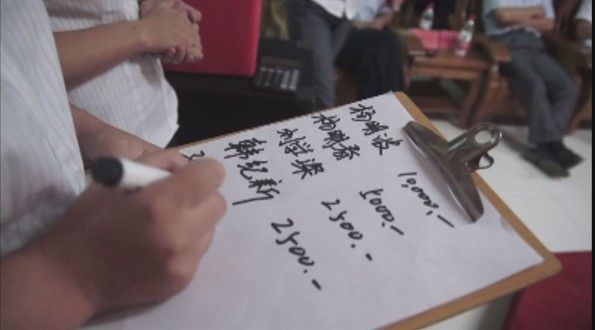 杨明波 10,000.-
杨明春 5000.-
刘学深 2500.-
韩纪新 2500.-